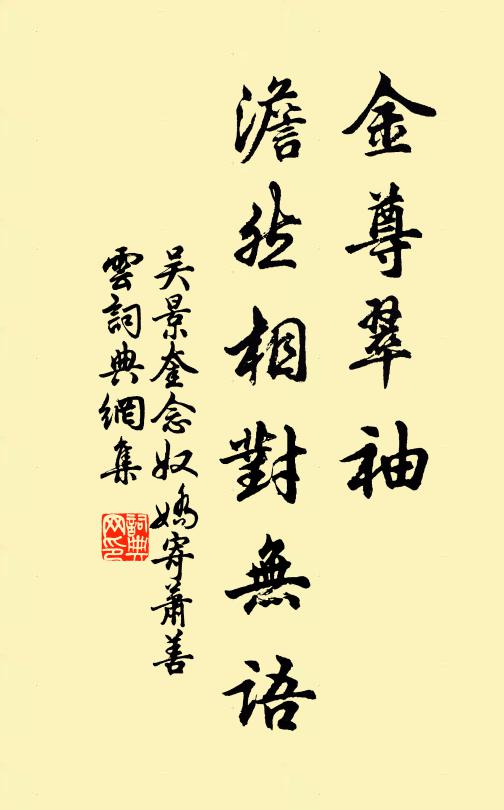 金尊翠袖
澹然相對無語
吴景奎念奴嬌寄蕭善
雲詞典網集
詞典网印